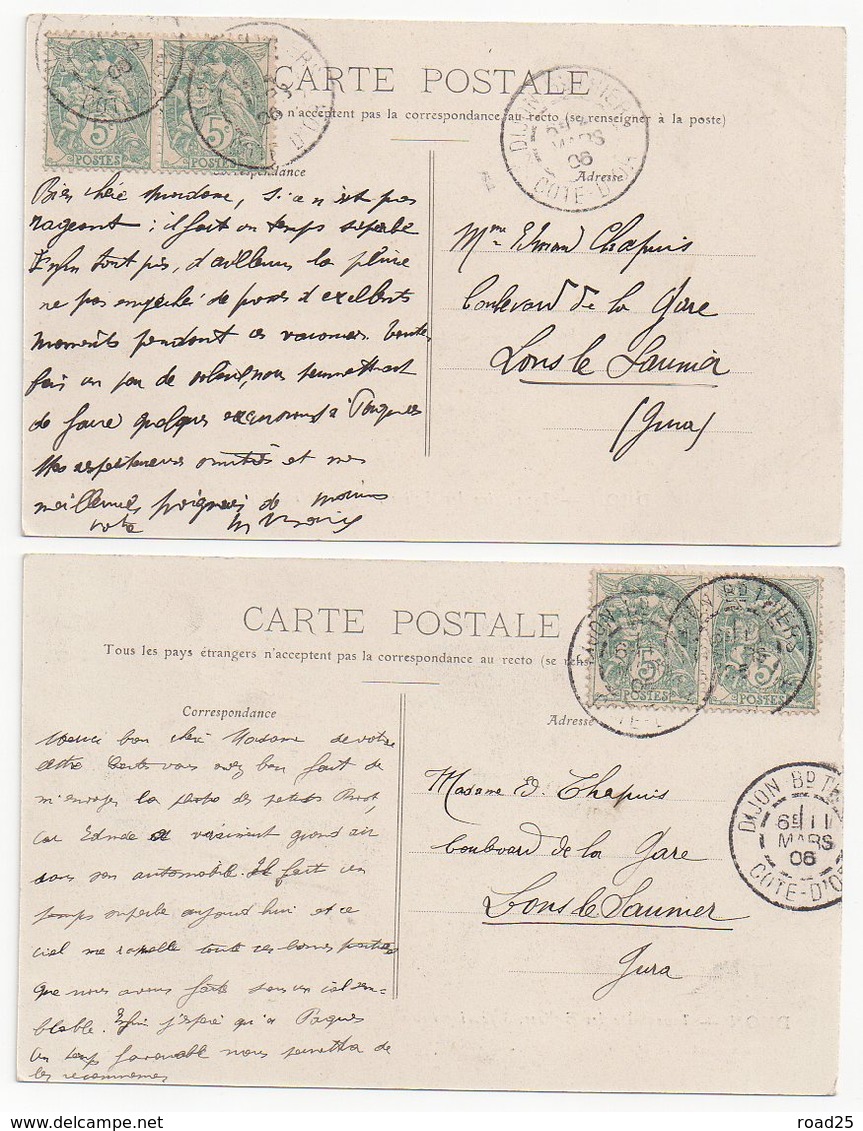 CARTE POSTALE
n'acceptent pas la correspondance au recto (se renseigner à la poste)
Correspondance
Adresse
5c 5c
POSTES POSTES
DIJON
MARS
06
COTE-D'OR
Bien chère Madame, si ce n'est pas
rageant : il fait un temps superbe
Enfin tant pis, d'ailleurs la pluie
ne pas empêché de passer d'excellents
moments pendant ces vacances
fois un peu de soleil, nous permettant
de faire quelques excursions à Pâques
Mes respectueuses amitiés et mes
meilleures poignées de mains
Mme Edmond Chapuis
boulevard de la Gare
Lons le Saunier
(Jura)
CARTE POSTALE
Tous les pays étrangers n'acceptent pas la correspondance au recto (se rens
Correspondance
Adresse
5c
POSTES POSTES
DIJON Bd THIERS
DIJON Bd TH
6E 11
MARS
06
COTE-D'OR
Merci bon chère Madame de votre
lettre vous avez bien fait de
m'envoyer la photo des petits
car a vraiment grand air
dans son automobile. Il fait un
temps superbe aujourd'hui et ce
ciel me rappelle toute ces bonnes parties
que nous avons faite sous un ciel sem-
blable. Enfin j'espère qu'a Paques
un temps favorable nous permettra de
les recommencer
Madame E. Chapuis
boulevard de la Gare
Lons le Saunier
Jura
road25